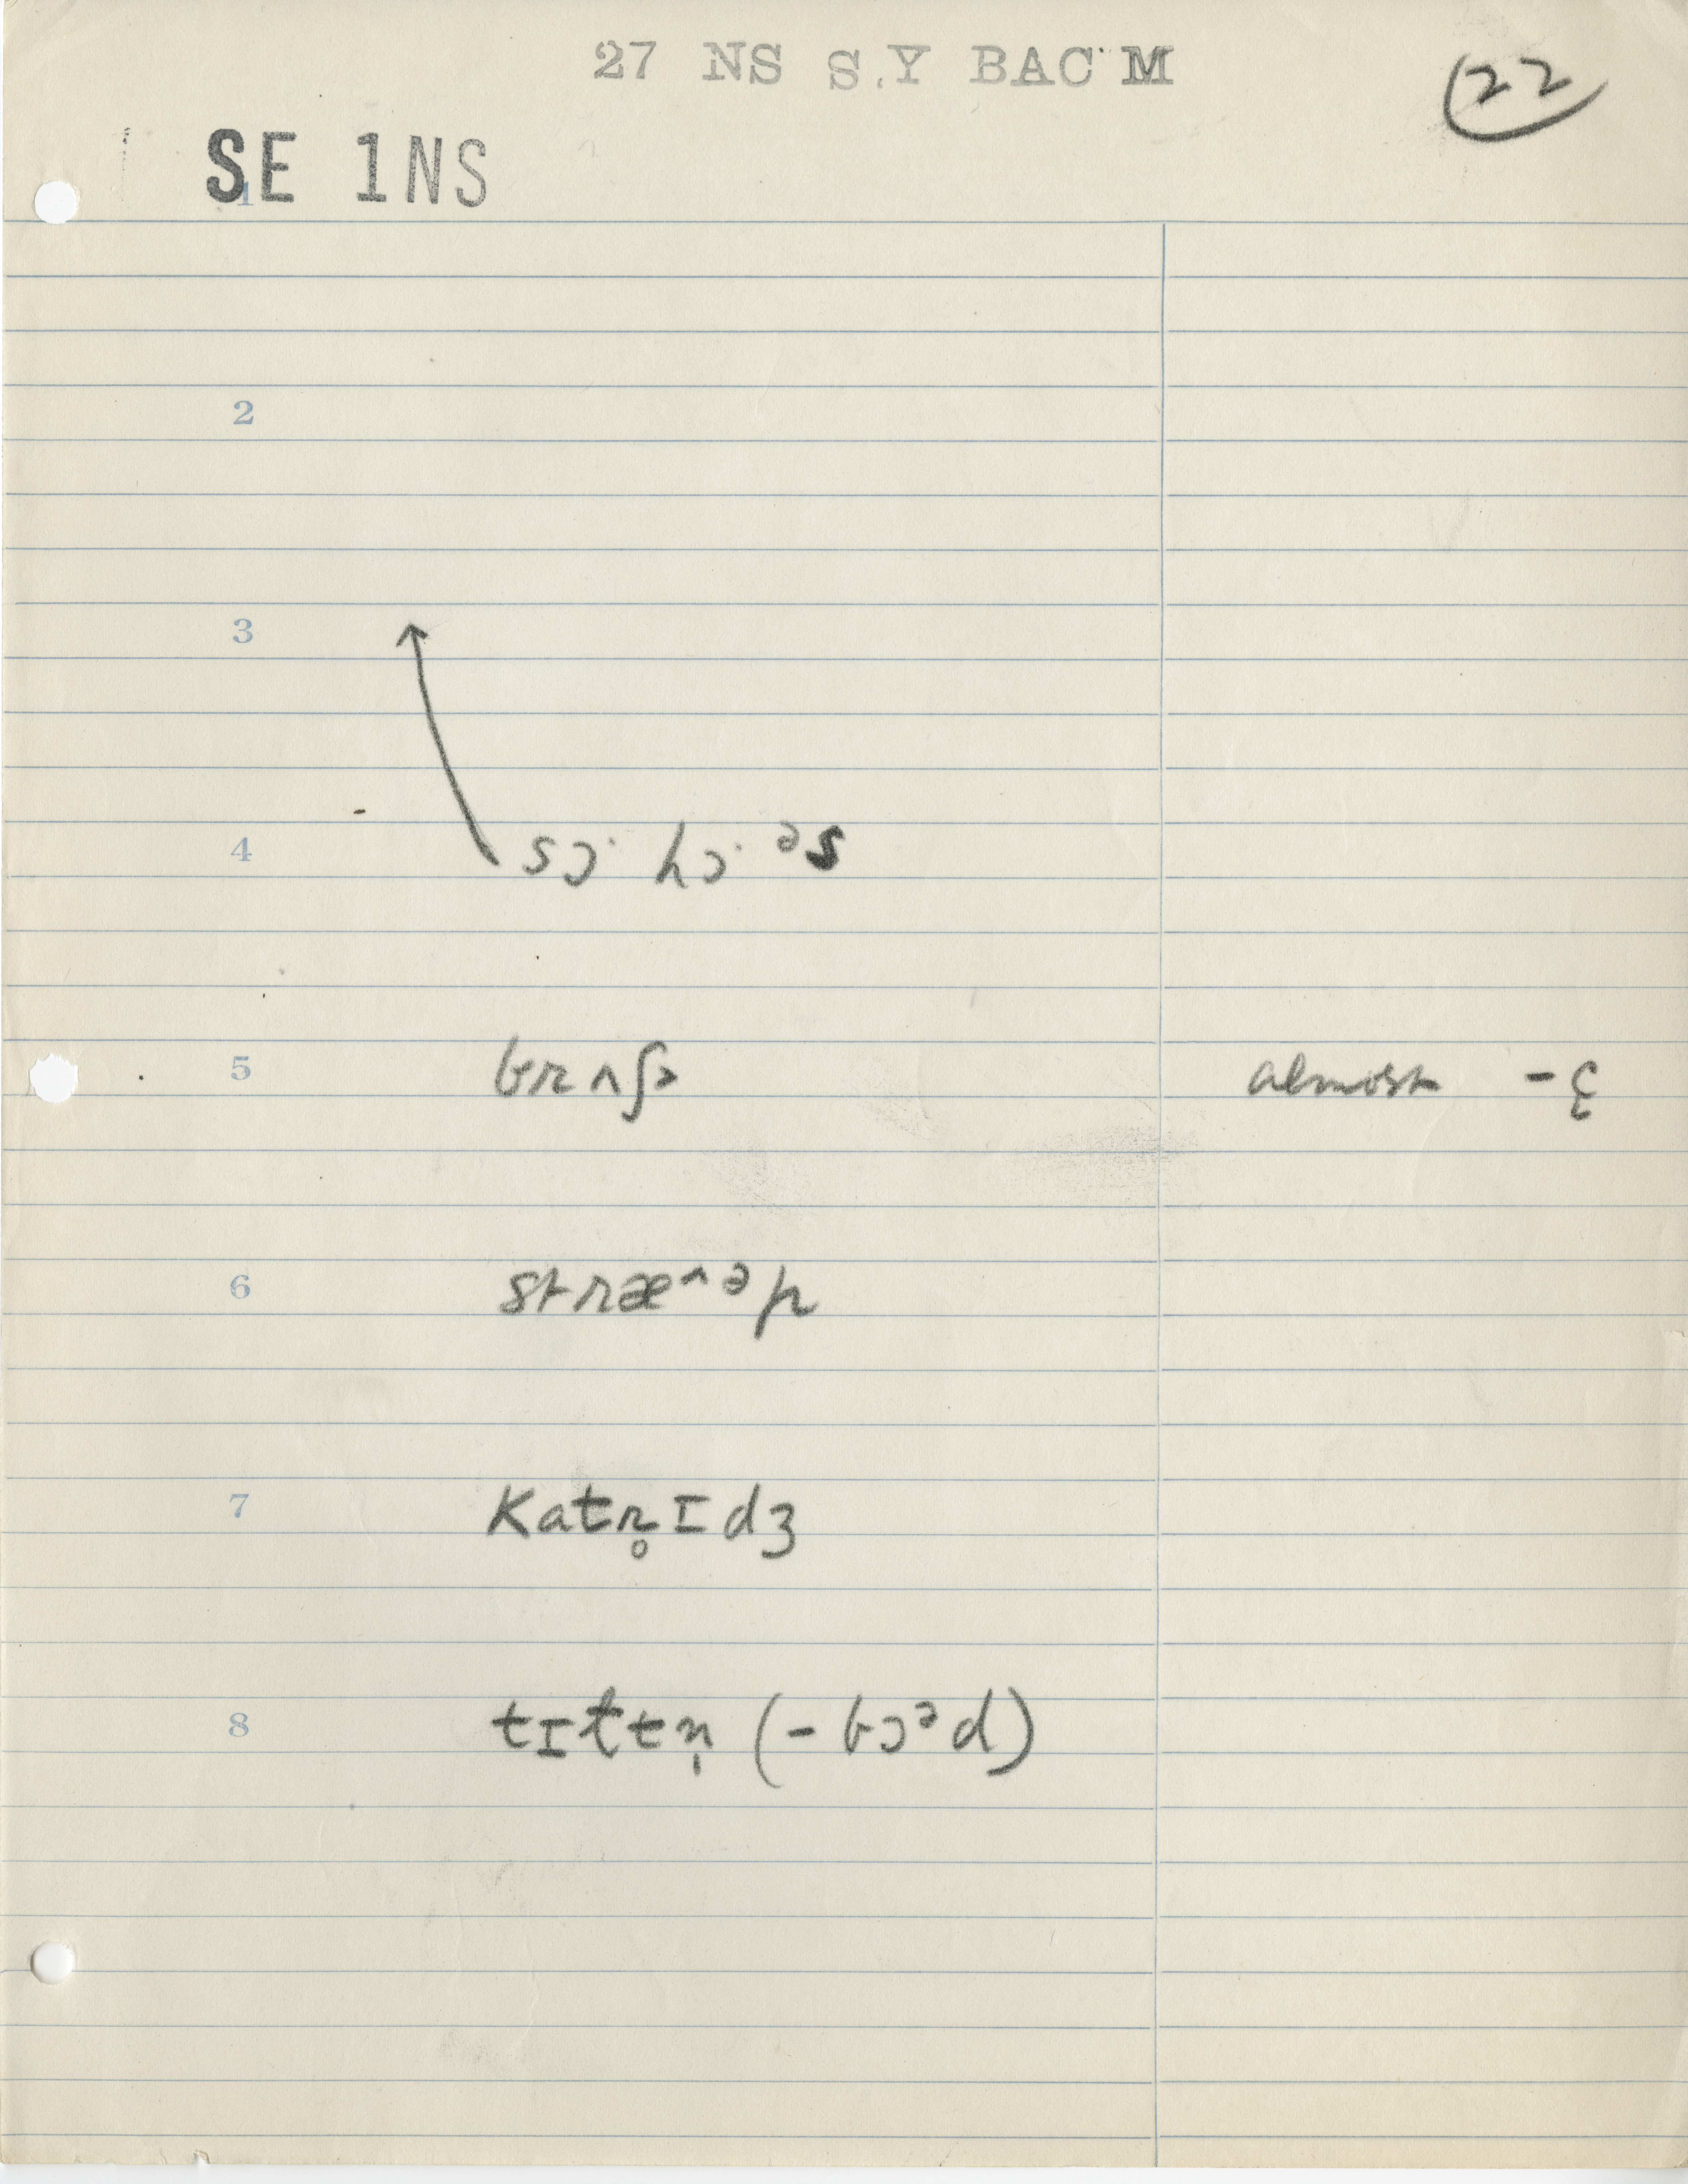 27 NS S.Y BAC M
22
SE 1NS
1
2
3
4 sɔ· hɔ· ᵊs
5 brʌʃə almost -ɛ
6 stræ^ᵊp
7 katr̥ɪdʒ
8 tɪttn̩ (-bɔᵊd)